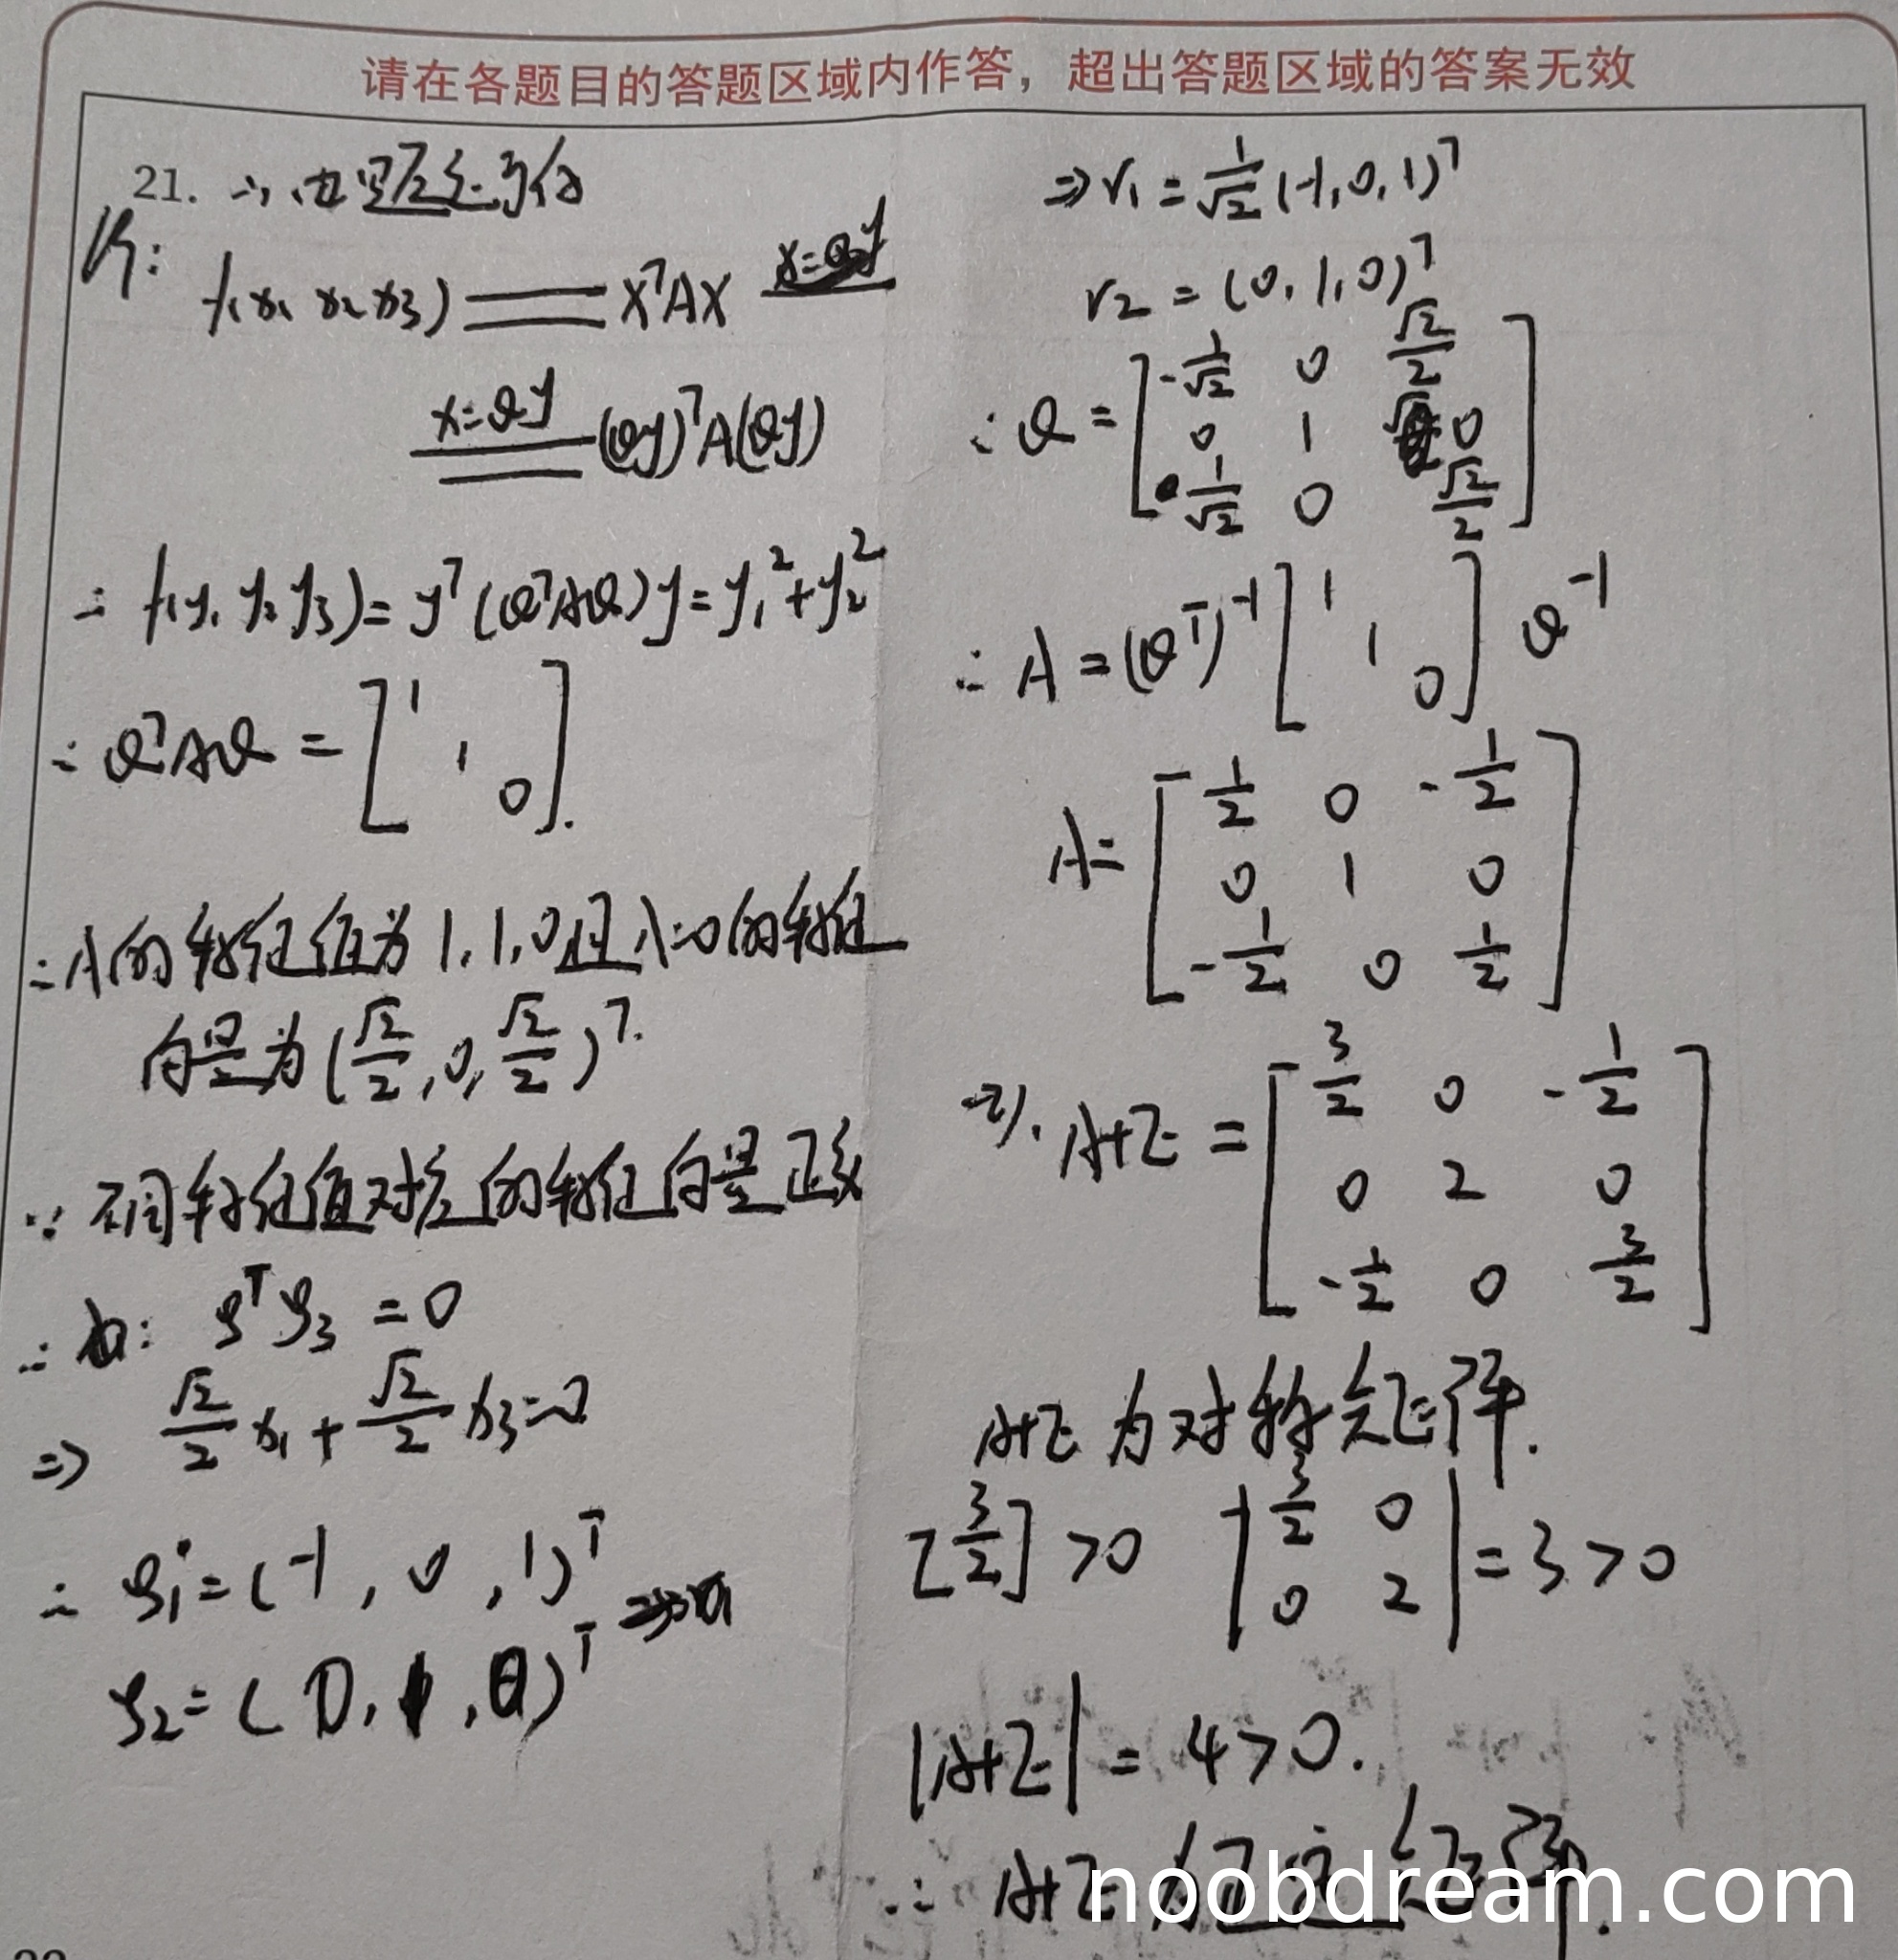 请在各题目的答题区域内作答，超出答题区域的答案无效
21. (1) 由题意可知
解:
f(x₁ x₂ x₃) = XᵀAX
x=Qy (Qy)ᵀA(Qy)
∴ f(y₁ y₂ y₃) = yᵀ(QᵀAQ)y = y₁² + y₂²
∴ QᵀAQ = [1 1 0].
∴ A的特征值为1,1,0且λ=0的特征
向量为(√2/2, 0, √2/2)ᵀ.
∵ 不同特征值对应的特征向量正交
∴ ξᵀξ₃ = 0
⇒ √2/2 x₁ + √2/2 x₃ = 0
∴ ξ₁ = (-1, 0, 1)ᵀ
ξ₂ = (0, 1, 0)ᵀ
⇒ r₁ = 1/√2 (-1, 0, 1)ᵀ
r₂ = (0, 1, 0)ᵀ
∴ Q = [ -1/√2 0 √2/2
0 1 0
1/√2 0 √2/2 ]
∴ A = (Qᵀ)⁻¹ [1 1 0] Q⁻¹
A = [ 1/2 0 -1/2
0 1 0
-1/2 0 1/2 ]
(2). A+E = [ 3/2 0 -1/2
0 2 0
-1/2 0 3/2 ]
A+E 为对称矩阵.
[3/2] > 0 | 3/2 0
0 2 | = 3 > 0
|A+E| = 4 > 0.
∴ A+E 为正定矩阵.
noobdream.com